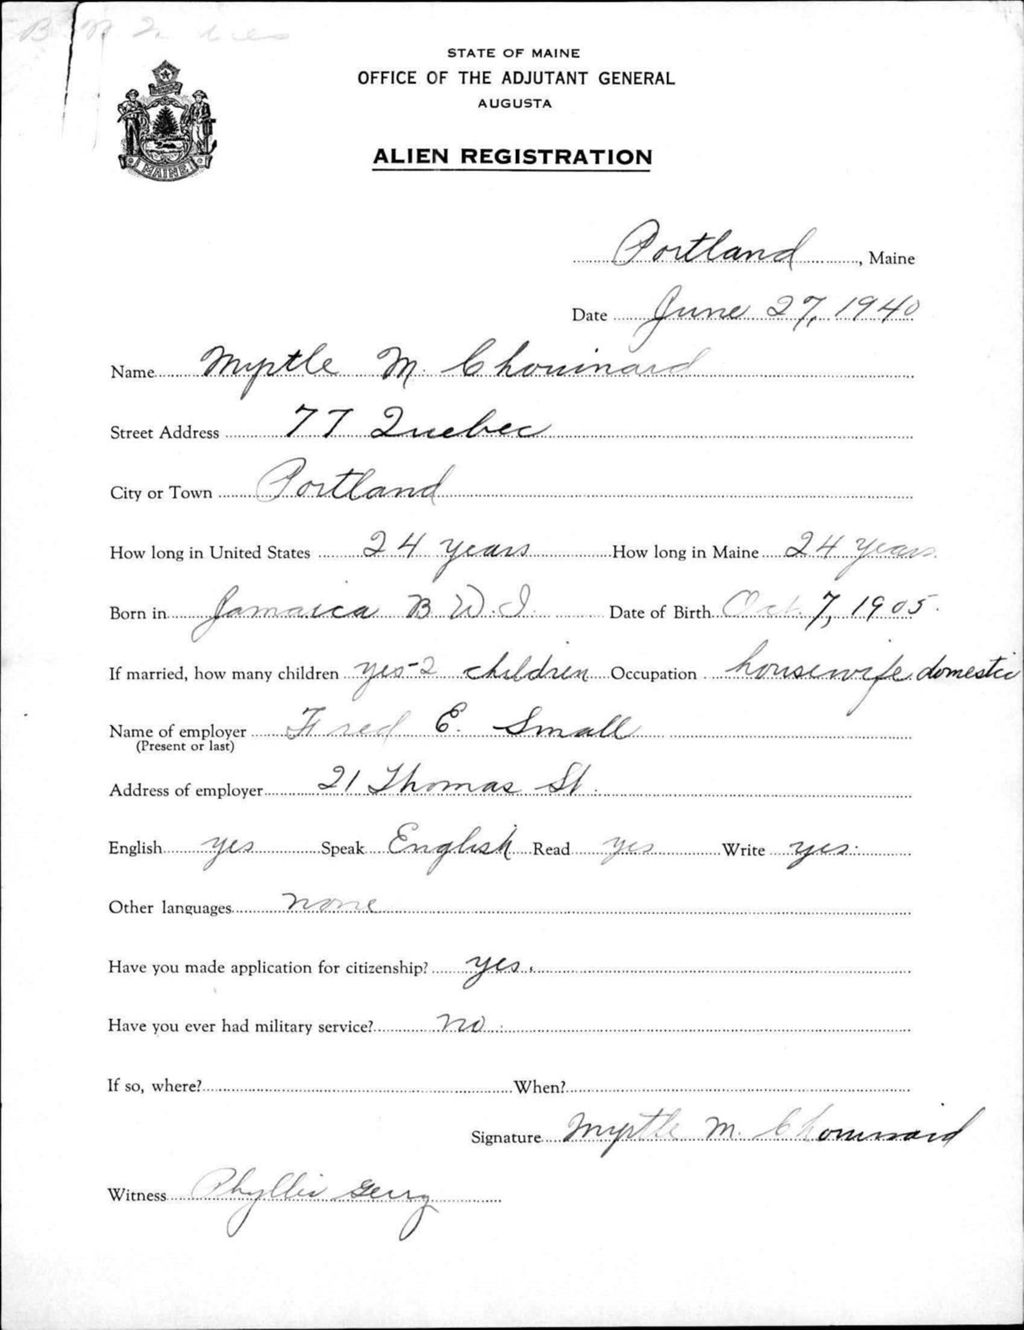 STATE OF MAINE
OFFICE OF THE ADJUTANT GENERAL
AUGUSTA
ALIEN REGISTRATION
MAINE
Portland, Maine
Date June 27, 1940
Name Myrtle M. Chouinard
Street Address 77 Quebec
City or Town Portland
How long in United States 24 years How long in Maine 24 years
Born in Jamaica B W. I. Date of Birth Oct. 7, 1905.
If married, how many children yes-2 children Occupation housewife domestic
Name of employer Fred E. Small
(Present or last)
Address of employer 21 Thomas St.
English yes Speak English Read yes Write yes.
Other languages none
Have you made application for citizenship? yes.
Have you ever had military service? no
If so, where? When?
Signature Myrtle M. Chouinard
Witness Phyllis Gerry